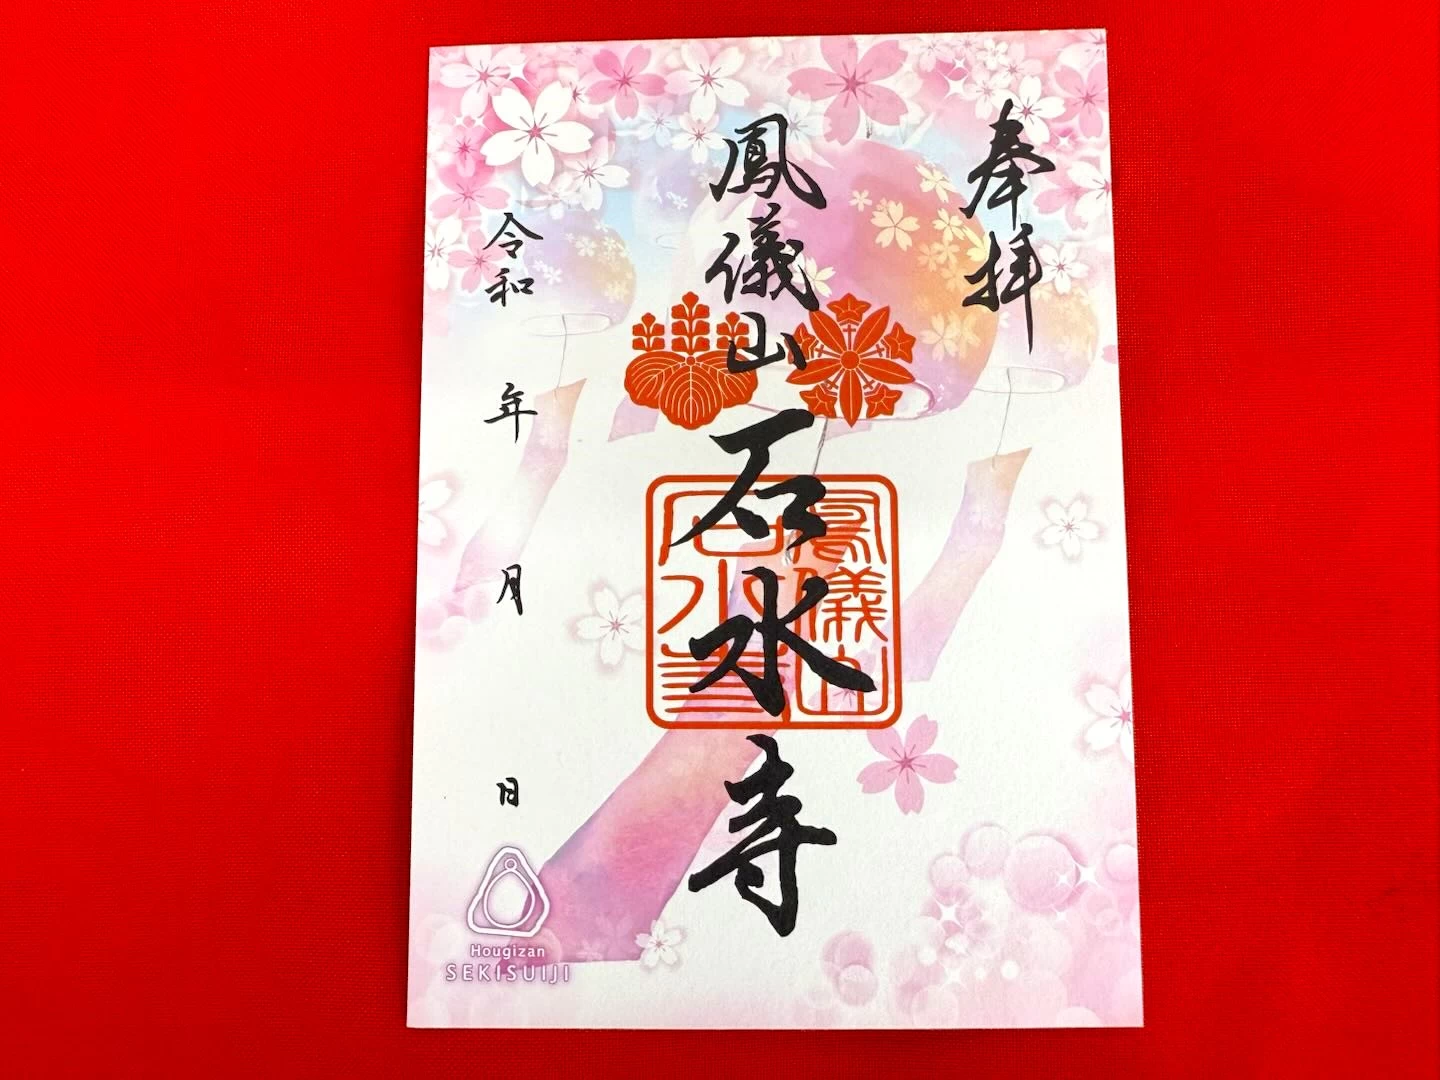 奉拝
鳳儀山
石水寺
鳳儀山
石水寺
令和 年 月 日
Hougizan
SEKISUIJI